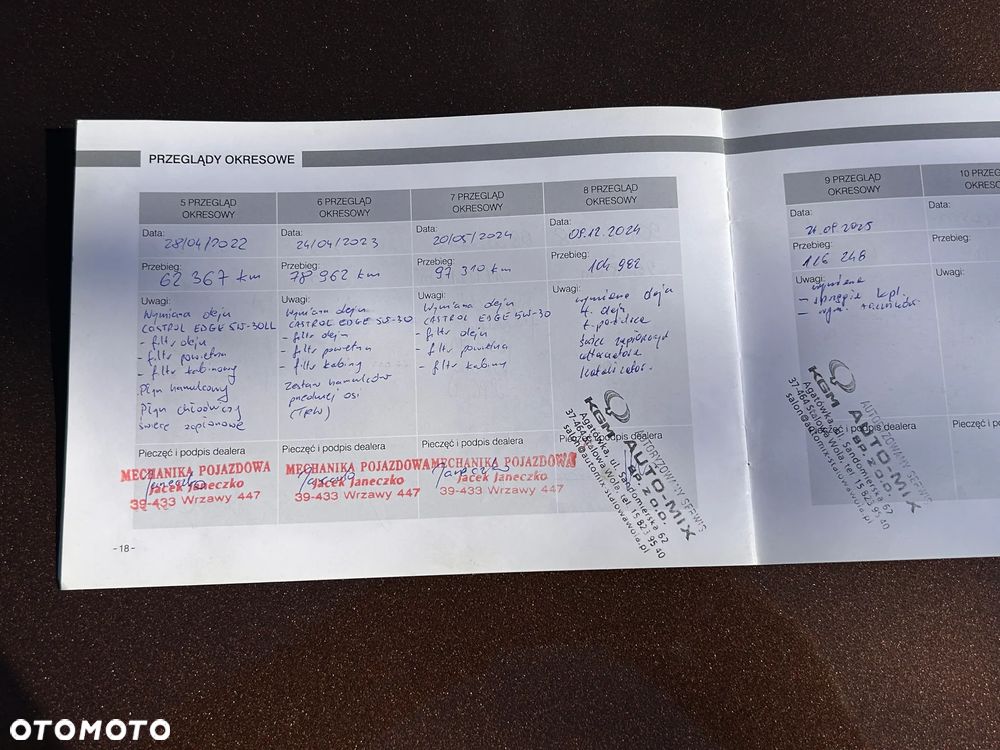 PRZEGLĄDY OKRESOWE
5 PRZEGLĄD
OKRESOWY
Data:
28/04/2022
Przebieg:
62 367 km
Uwagi:
Wymiana oleju
CASTROL EDGE 5W-30LL
- filtr oleju
- filtr powietrza
- filtr kabinowy
Płyn hamulcowy
Płyn chłodniczy
świece zapłonowe
Pieczęć i podpis dealera
MECHANIKA POJAZDOWA
Jacek Janeczko
39-433 Wrzawy 447
6 PRZEGLĄD
OKRESOWY
Data:
24/04/2023
Przebieg:
78 962 km
Uwagi:
Wymiana oleju
CASTROL EDGE 5W-30
- filtr oleju
- filtr powietrza
- filtr kabiny
Zestaw hamulców
przedniej osi
(TRW)
Pieczęć i podpis dealera
MECHANIKA POJAZDOWA
Jacek Janeczko
39-433 Wrzawy 447
7 PRZEGLĄD
OKRESOWY
Data:
20/05/2024
Przebieg:
97 310 km
Uwagi:
Wymiana oleju
CASTROL EDGE 5W-30
- filtr oleju
- filtr powietrza
- filtr kabiny
Pieczęć i podpis dealera
MECHANIKA POJAZDOWA
Jacek Janeczko
39-433 Wrzawy 447
8 PRZEGLĄD
OKRESOWY
Data:
09.12.2024
Przebieg:
104 982
Uwagi:
wymiana oleju
f. oleju
f. powietrza
świece zapłonowych
katalizator.
Pieczęć i podpis dealera
AUTORYZOWANY SERWIS
KGM AUTO-MIX
SP. z o.o.
Agatówka, ul. Sandomierska 62
37-464 Stalowa Wola, tel. 15 823 95 40
salon@automix-stalowawola.pl
9 PRZEGLĄD
OKRESOWY
Data:
Przebieg:
116 248
Uwagi:
wymiana
- sprzęgło kpl.
Pieczęć i podpis dealera
AUTORYZOWANY SERWIS
KGM AUTO-MIX
SP. z o.o.
Agatówka, ul. Sandomierska 62
37-464 Stalowa Wola, tel. 15 823 95 40
salon@automix-stalowawola.pl
10 PRZEG
OKRESO
Data:
Przebieg:
Uwagi:
Pieczęć i po
- 18 -
OTOMOTO